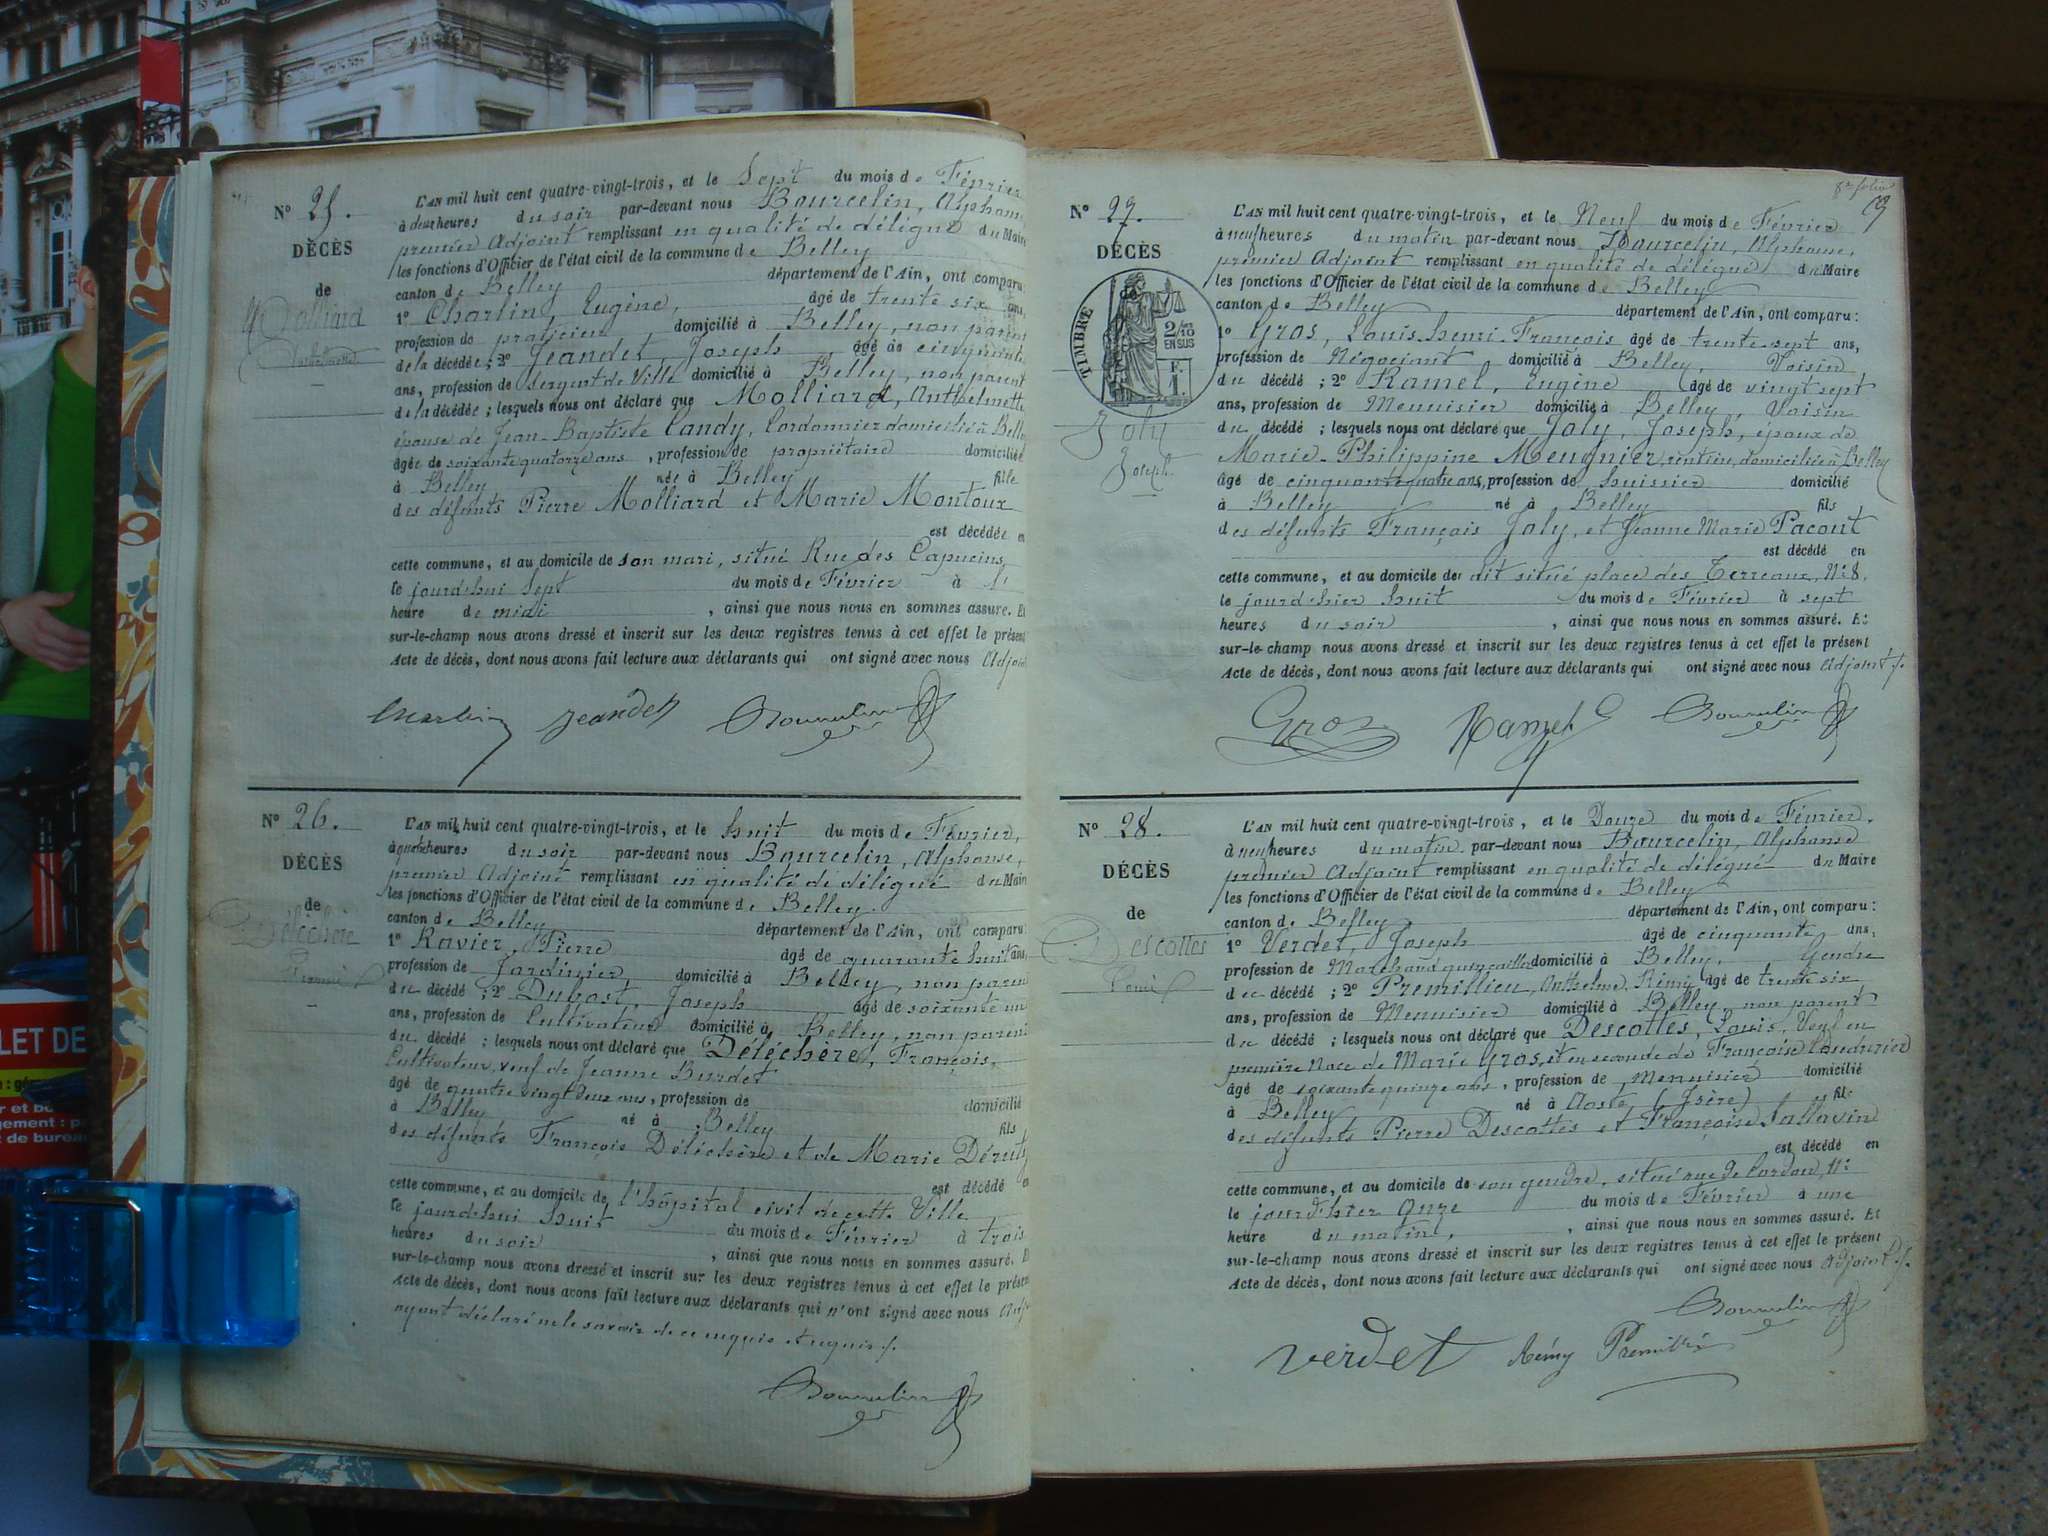 N° 25.
DÉCÈS
de
Molliard
L'AN mil huit cent quatre-vingt-trois, et le Sept du mois de Février
à deux heures du soir par-devant nous Bourcelin, Alphonse
premier Adjoint remplissant en qualité de délégué du Maire
les fonctions d'Officier de l'état civil de la commune de Belley
canton de Belley département de l'Ain, ont comparu
1° Charlin Eugène, âgé de trente six ans,
profession de praticien domicilié à Belley, non parent
de la décédée; 2° Jeandet, Joseph âgé de cinquante
ans, profession de Sergent de Ville domicilié à Belley, non parent
de la décédée; lesquels nous ont déclaré que Molliard, Anthelmette
épouse de Jean-Baptiste Candy, Cordonnier domicilié à Belley
âgée de soixante quatorze ans, profession de propriétaire domiciliée
à Belley née à Belley fille
des défunts Pierre Molliard et Marie Montoux
est décédée en
cette commune, et au domicile de son mari, situé Rue des Capucins
le jourd'hui Sept du mois de Février à
heure de midi, ainsi que nous nous en sommes assuré. Et
sur-le-champ nous avons dressé et inscrit sur les deux registres tenus à cet effet le présent
Acte de décès, dont nous avons fait lecture aux déclarants qui ont signé avec nous Adjoint
Charlin Jeandet Bourcelin
N° 26.
DÉCÈS
de
Déléchère
L'AN mil huit cent quatre-vingt-trois, et le huit du mois de Février,
à quatre heures du soir par-devant nous Bourcelin, Alphonse,
premier Adjoint remplissant en qualité de délégué du Maire
les fonctions d'Officier de l'état civil de la commune de Belley.
canton de Belley département de l'Ain, ont comparu:
1° Ravier, Pierre âgé de quarante huit ans,
profession de Jardinier, domicilié à Belley, non parent
du décédé; 2° Dubost, Joseph âgé de soixante un
ans, profession de Cultivateur domicilié à Belley, non parent
du décédé; lesquels nous ont déclaré que Déléchère, François,
Cultivateur, veuf de Jeanne Burdet
âgé de quatre vingt deux ans, profession de domicilié
à Belley né à Belley fils
des défunts François Déléchère et de Marie Dérut
est décédé en
cette commune, et au domicile de l'hôpital civil de cette Ville
le jourd'hui huit du mois de Février à trois
heures du soir, ainsi que nous nous en sommes assuré. Et
sur-le-champ nous avons dressé et inscrit sur les deux registres tenus à cet effet le présent
Acte de décès, dont nous avons fait lecture aux déclarants qui n'ont signé avec nous Adj
ayant déclaré ne le savoir de ce enquis et requis /.
Bourcelin
8e folio
N° 27.
DÉCÈS
de
TIMBRE
2/10
EN SUS
F.
1.
Joly
Joseph
L'AN mil huit cent quatre-vingt-trois, et le Neuf du mois de Février
à neuf heures du matin par-devant nous Bourcelin, Alphonse,
premier Adjoint remplissant en qualité de délégué du Maire
les fonctions d'Officier de l'état civil de la commune de Belley
canton de Belley département de l'Ain, ont comparu:
1° Gros, Louis-henri-François âgé de trente-sept ans,
profession de Négociant domicilié à Belley, Voisin
du décédé; 2° Ramel, Eugène âgé de vingt sept
ans, profession de Menuisier domicilié à Belley, Voisin
du décédé; lesquels nous ont déclaré que Joly, Joseph, époux de
Marie-Philippine Meugnier, rentière, domiciliée à Belley
âgé de cinquante quatre ans, profession de huissier domicilié
à Belley né à Belley fils
des défunts François Joly, et Jeanne Marie Pacout
est décédé en
cette commune, et au domicile de dit situé place des Terreaux, N° 8.
le jourd'hier huit du mois de Février à sept
heures du soir, ainsi que nous nous en sommes assuré. Et
sur-le-champ nous avons dressé et inscrit sur les deux registres tenus à cet effet le présent
Acte de décès, dont nous avons fait lecture aux déclarants qui ont signé avec nous Adjoint /.
Gros Ramel Bourcelin
N° 28.
DÉCÈS
de
Descottes
Louis
L'AN mil huit cent quatre-vingt-trois, et le Douze du mois de Février.
à neuf heures du matin par-devant nous Bourcelin, Alphonse
premier Adjoint remplissant en qualité de délégué du Maire
les fonctions d'Officier de l'état civil de la commune de Belley
canton de Belley département de l'Ain, ont comparu:
1° Verdet, Joseph âgé de cinquante ans,
profession de Marchand quincaillier domicilié à Belley, Gendre
du décédé; 2° Premillieu, Anthelme Rémy âgé de trente six
ans, profession de Menuisier domicilié à Belley, non parent
du décédé; lesquels nous ont déclaré que Descottes, Louis, Veuf en
première Noce de Marie Gros, et en seconde de Françoise
âgé de soixante quinze ans, profession de Menuisier domicilié
à Belley né à Aoste (Isère) fils
des défunts Pierre Descottes et Françoise Sallavin
est décédé en
cette commune, et au domicile de son gendre, situé rue de Cordon, N°
le jourd'hier Onze du mois de Février à une
heure du matin, ainsi que nous nous en sommes assuré. Et
sur-le-champ nous avons dressé et inscrit sur les deux registres tenus à cet effet le présent
Acte de décès, dont nous avons fait lecture aux déclarants qui ont signé avec nous Adjoint /.
Bourcelin
Verdet Rémy
LET DE